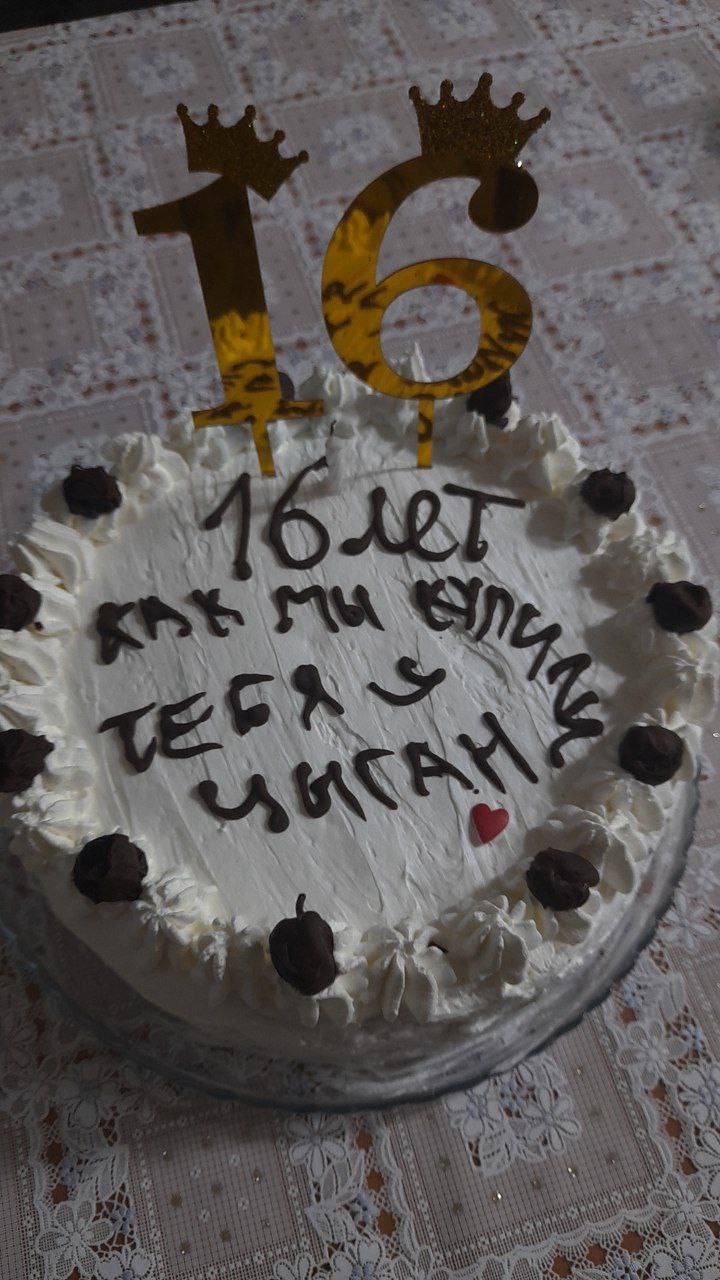 16
16 лет
КАК МЫ КУПИЛИ
ТЕБЯ У
ЦЫГАН